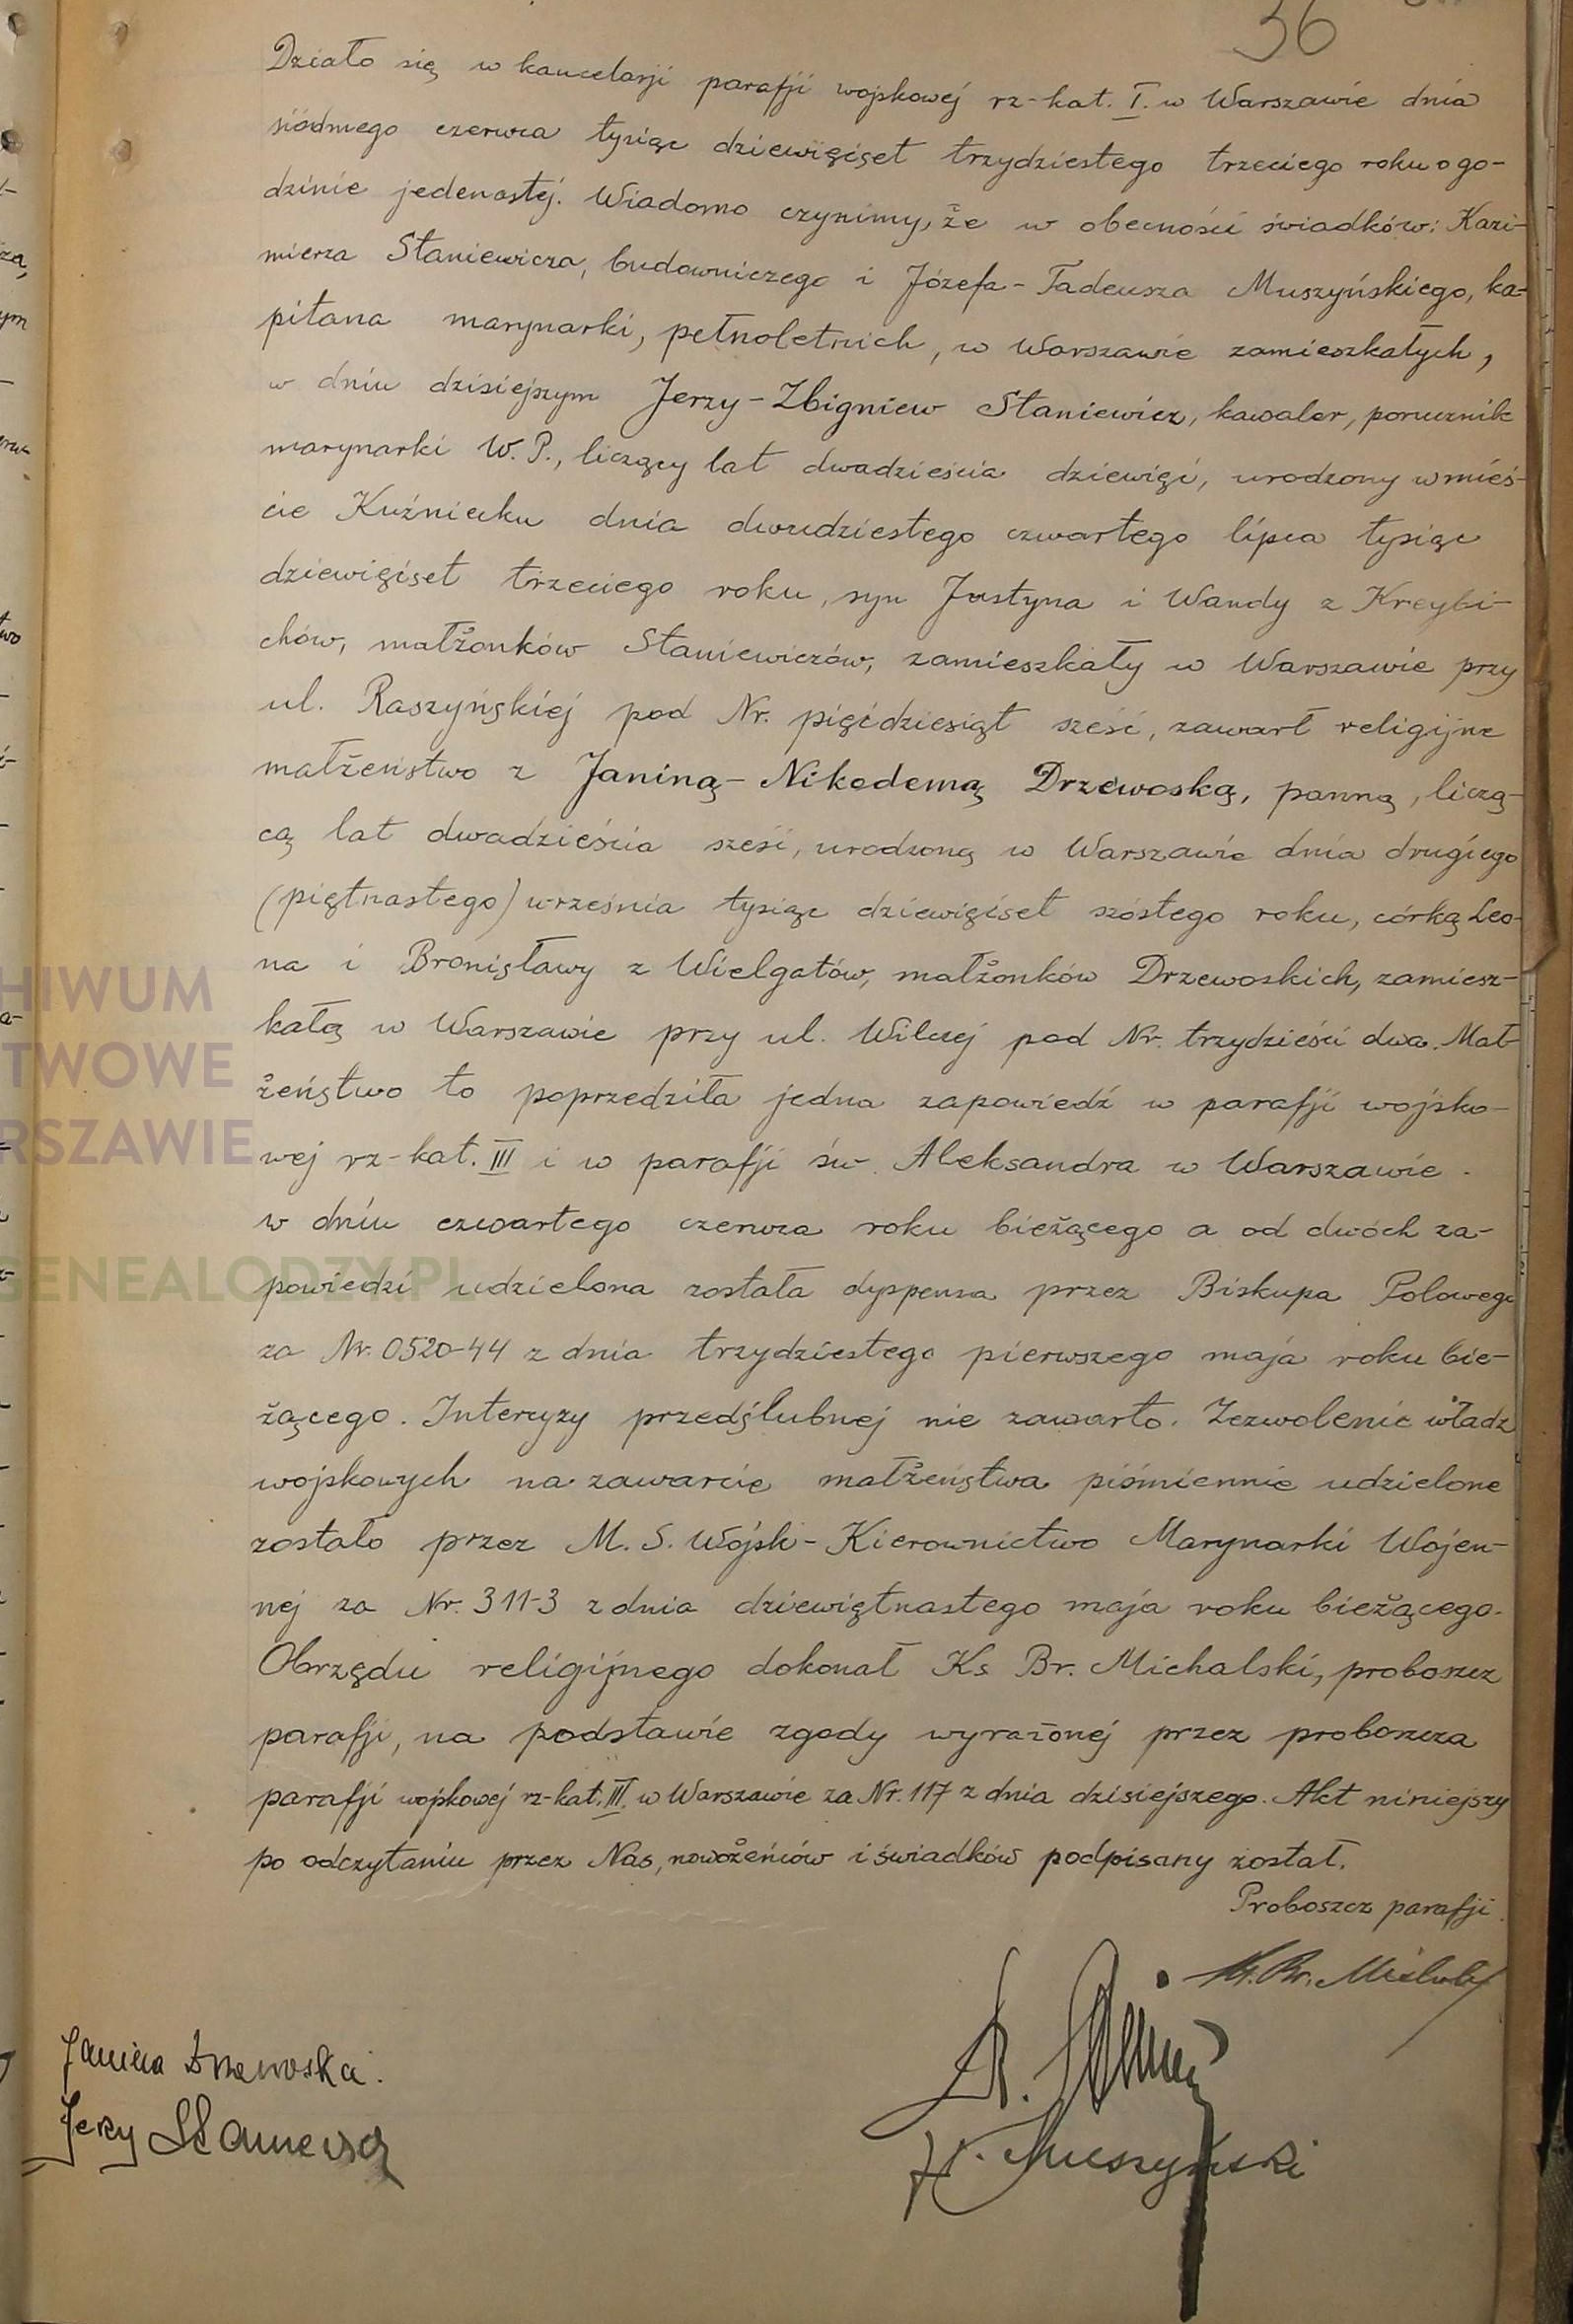 36
Działo się w kancelarji parafji wojskowej rz-kat. I. w Warszawie dnia
siódmego czerwca tysiąc dziewięćset trzydziestego trzeciego roku o go-
dzinie jedenastej. Wiadomo czynimy, że w obecności świadków: Kazi-
mierza Staniewicza, budowniczego i Józefa-Tadeusza Muszyńskiego, ka-
pitana marynarki, pełnoletnich, w Warszawie zamieszkałych,
w dniu dzisiejszym Jerzy-Zbigniew Staniewicz, kawaler, porucznik
marynarki W. P., liczący lat dwadzieścia dziewięć, urodzony w mieś-
cie Kuźniecku dnia dwudziestego czwartego lipca tysiąc
dziewięćset trzeciego roku, syn Justyna i Wandy z Kreybi-
chów, małżonków Staniewiczów, zamieszkały w Warszawie przy
ul. Raszyńskiej pod Nr. pięćdziesiąt sześć, zawarł religijne
małżeństwo z Janiną-Nikodemą Drzewoską, panną, liczą-
cą lat dwadzieścia sześć, urodzoną w Warszawie dnia drugiego
(piętnastego) września tysiąc dziewięćset szóstego roku, córką Leo-
na i Bronisławy z Wielgatów, małżonków Drzewoskich, zamiesz-
kałą w Warszawie przy ul. Wilczej pod Nr. trzydzieści dwa. Mał-
żeństwo to poprzedziła jedna zapowiedź w parafji wojsko-
wej rz-kat. III i w parafji św. Aleksandra w Warszawie.
w dniu czwartego czerwca roku bieżącego a od dwóch za-
powiedzi udzielona została dyspensa przez Biskupa Polowego
za Nr. 0520-44 z dnia trzydziestego pierwszego maja roku bie-
żącego. Intercyzy przedślubnej nie zawarto. Zezwolenie władz
wojskowych na zawarcie małżeństwa piśmiennie udzielone
zostało przez M. S. Wojsk-Kierownictwo Marynarki Wojen-
nej za Nr. 311-3 z dnia dziewiętnastego maja roku bieżącego.
Obrzędu religijnego dokonał Ks Br. Michalski, proboszcz
parafji, na podstawie zgody wyrażonej przez proboszcza
parafji wojskowej rz-kat. III. w Warszawie za Nr. 117 z dnia dzisiejszego. Akt niniejszy
po odczytaniu przez Nas, nowożeńców i świadków podpisany został.
Proboszcz parafji
Ks. Br. Michalski
Janina Drzewoska.
Jerzy Staniewicz
Muszyński
HIWUM
TWOWE
RSZAWIE
GENEALODZY.PL